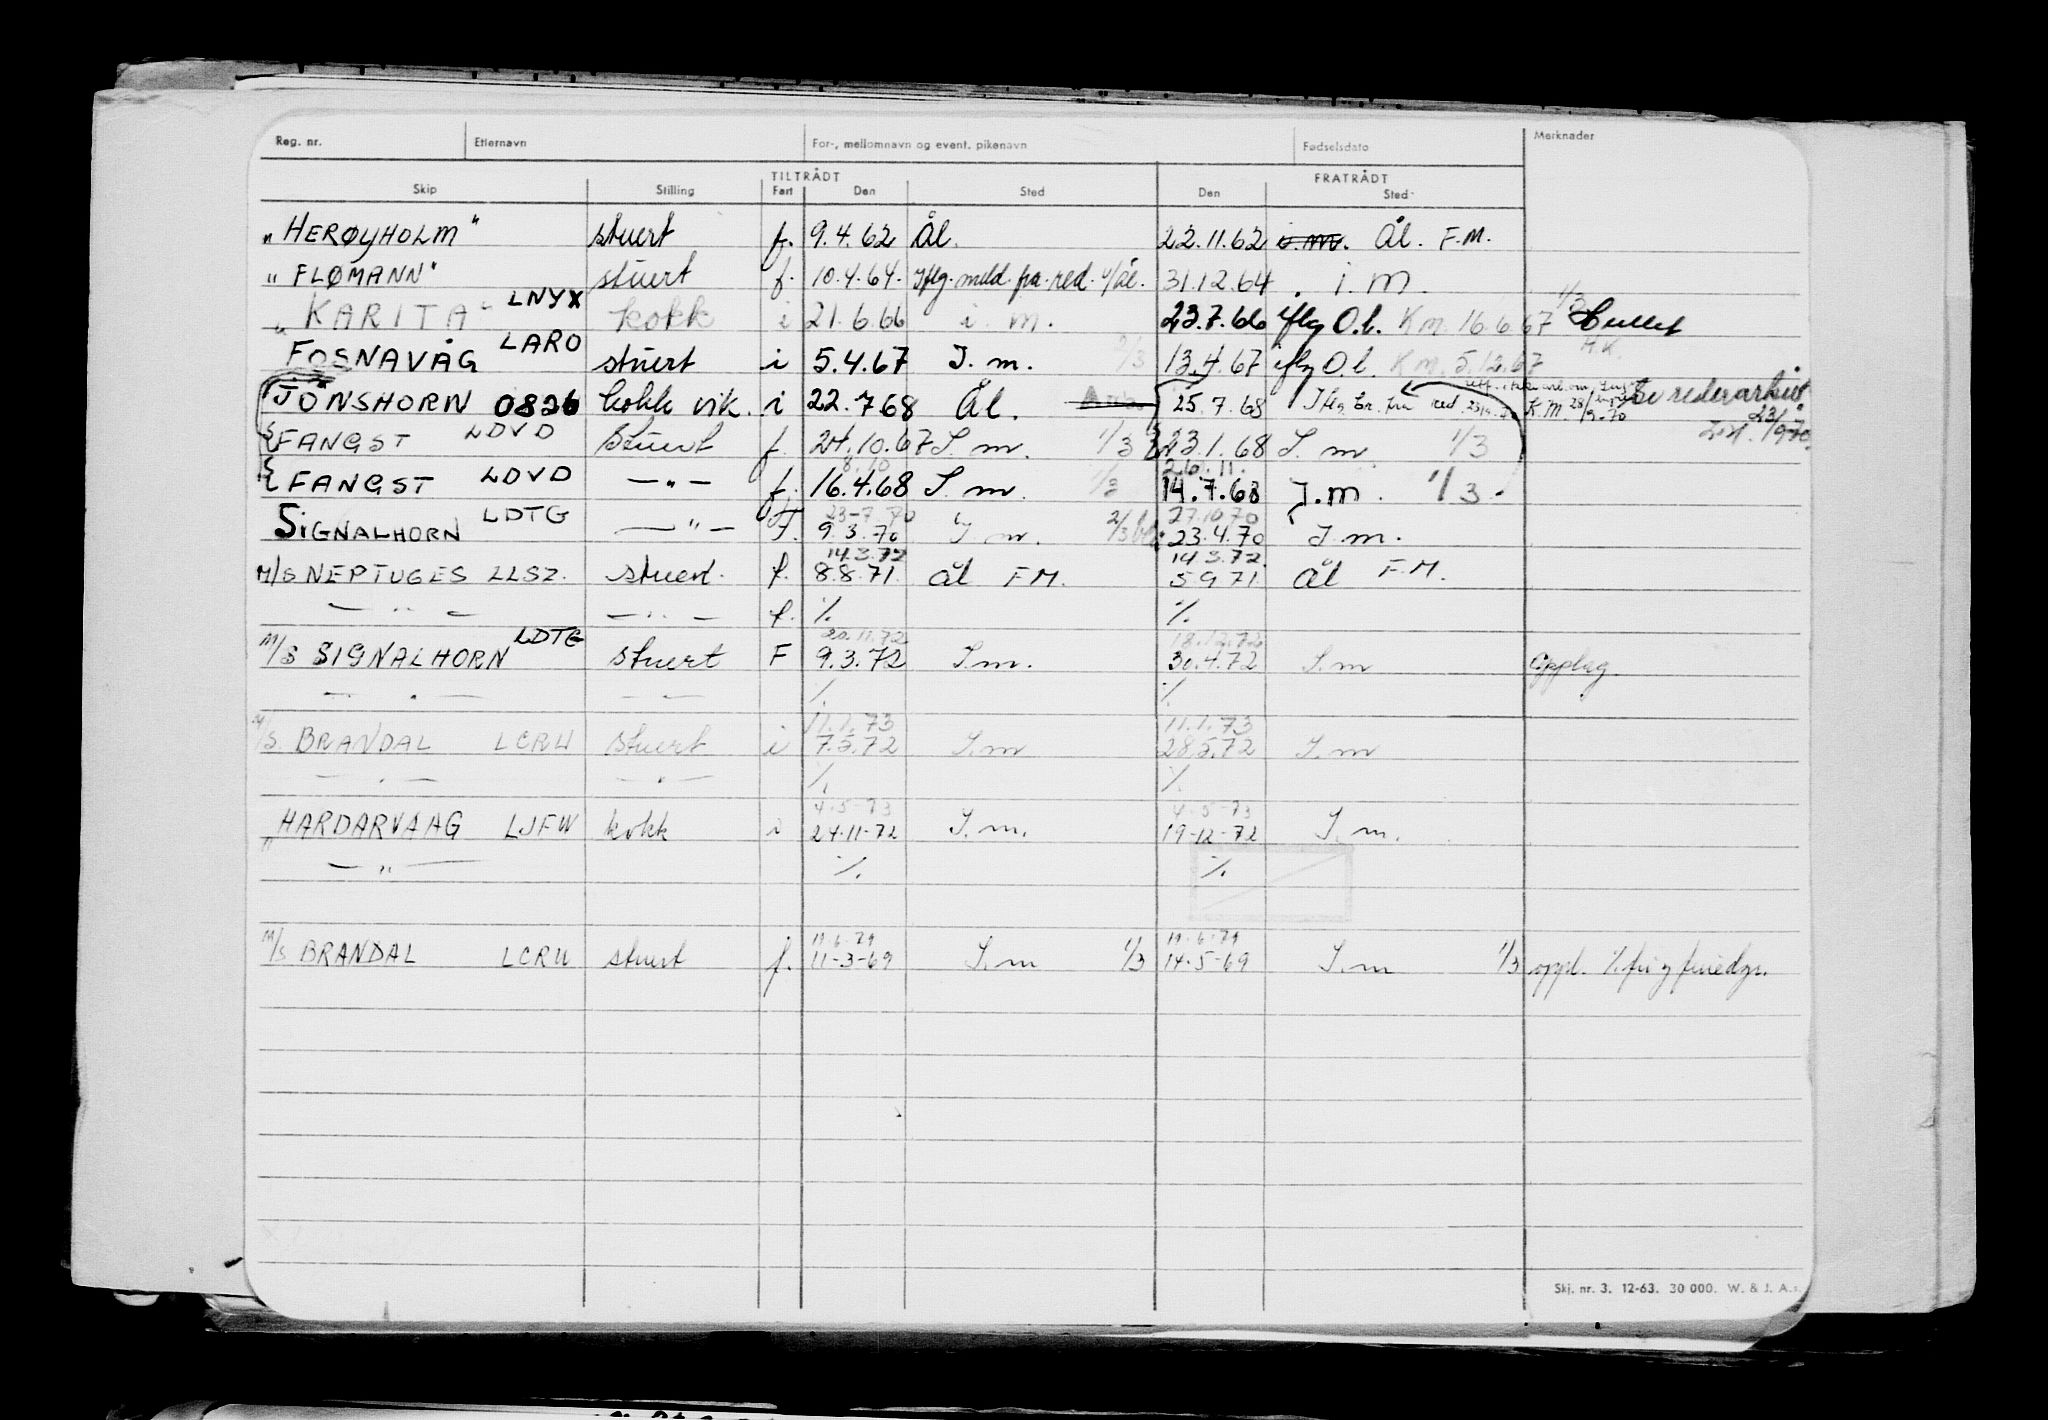 Reg. nr. Etternavn For-, mellomnavn og event. pikenavn Fødselsdato Merknader
TILTRÅDT FRATRÅDT
Skip Stilling Fart Den Sted Den Sted
"HERØYHOLM" stuert f. 9.4.62 Ål. 22.11.62 i.m. Ål. F.M.
"FLØMANN" stuert f. 10.4.64. Iflg. meld. fra red. 31.12.64 i m.
"KARITA" LNYX kokk i 21.6.66 i m. 23.7.66 iflg O.l. K m. 16.6.67 1/3
FOSNAVÅG LARO stuert i 5.4.67 I. m. 2/3 13.4.67 iflg O.l. K m. 5.12.67 H.K.
JONSHORN 0826 kokk vik. i 22.7.68 Ål. 25.7.68 Iflg br. fra red. K.M. 28/9.70 Se rederarkiv 23/9-70
FANGST LDVD stuert f. 24.10.67 I. m. 1/3 23.1.68 I. m. 1/3
8.10 26.11.
FANGST LDVD — " — f. 16.4.68 I. m. 1/3 14.7.68 I. m. 1/3
23-7.70 27.10.70
SIGNALHORN LDTG — " — F. 9.3.70 I m. 2/3 23.4.70 I. m.
14.3.72 14.3.72
M/S NEPTUGES LLSZ. stuert. f. 8.8.71 Ål F.M. 5 9 71 Ål F.M.
— " — — " — f. %. %.
20.11.72 18.12.72
M/S SIGNALHORN LDTG stuert F 9.3.72 I.m. 30.4.72 I.m Opplag.
— " — — — %. %.
11.1.73 11.1.73
M/S. BRANDAL LCRU stuert i 7.5.72 I.m 28.5.72 I.m
— " — — " — %. %.
4-5-73 4-5-73
"HARDARVAAG LJFW kokk i 24-11-72 I.m. 19-12-72 I.m.
— " — %. %.
M/S BRANDAL LCRU stuert f. 11-3-69 I.m 1/3 14-5-69 I.m 1/3 oppl.
Skj. nr. 3. 12-63. 30 000. W. & J. A.s